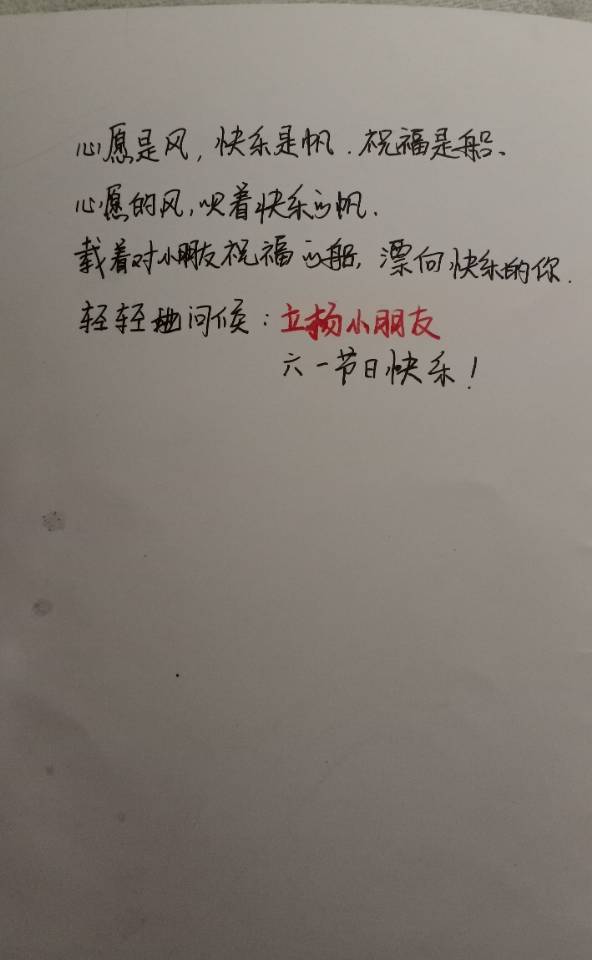 心愿是风,快乐是帆.祝福是船、
心愿的风,吹着快乐的帆.
载着对小朋友祝福的船,漂向快乐的你.
轻轻地问候:立扬小朋友
六一节日快乐!